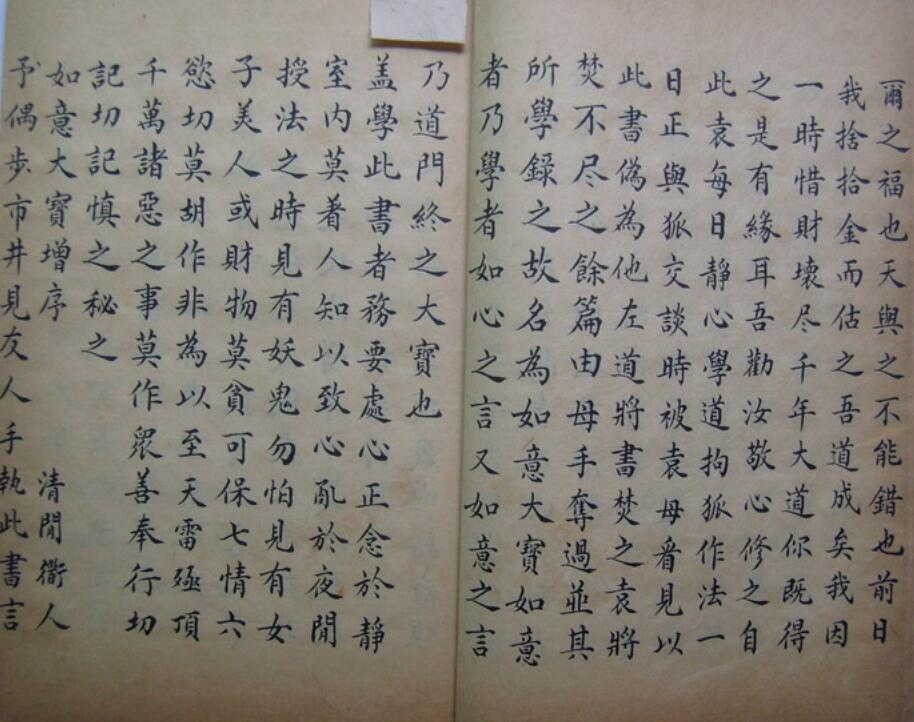 爾之福也天與之不能錯也前日
我捨拾金而估之吾道成矣我因
一時惜財壞尽千年大道你既得
之是有緣耳吾勸汝敬心修之自
此袁每日靜心學道拘狐作法一
日正與狐交談時被袁母看見以
此書偽為他左道將書焚之袁將
焚不尽之餘篇由母手奪過並其
所學錄之故名為如意大寶如意
者乃學者如心之言又如意之言
乃道門終之大寶也
盖學此書者務要處心正念於靜
室内莫着人知以致心亂於夜閒
授法之時見有妖鬼勿怕見有女
子美人或財物莫貪可保七情六
慾切莫胡作非為以至天雷殛頂
千萬諸惡之事莫作眾善奉行切
記切記慎之秘之
如意大寶增序 清閒衢人
予偶步市井見友人手執此書言